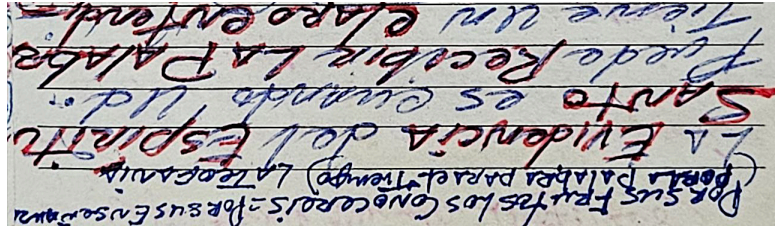 POR SUS FRUTOS LOS CONOCEREIS = POR SUS ENSEÑANZ
(POR LA PALABRA PARA EL TIEMPO) LA TEOFANIA
LA EVIDENCIA del ESPIRITU
SANTO es cuando Ud.
Puede Recibir LA PALABR
Tiene un Claro entendi-